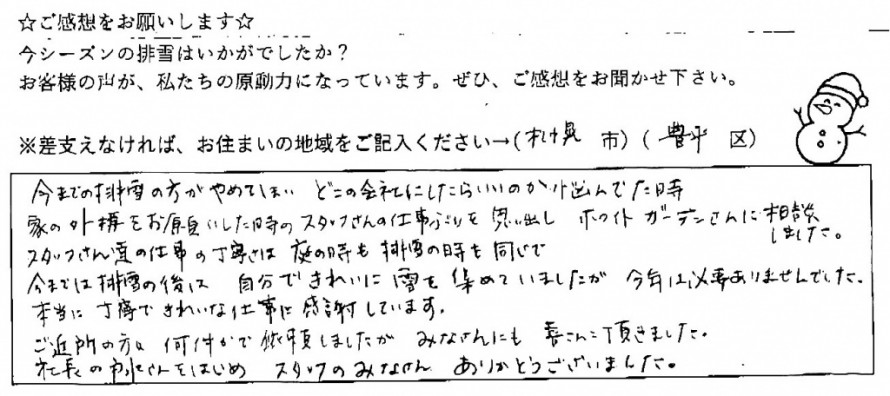 ☆ご感想をお願いします☆
今シーズンの排雪はいかがでしたか？
お客様の声が、私たちの原動力になっています。ぜひ、ご感想をお聞かせ下さい。
※差支えなければ、お住まいの地域をご記入ください→(札幌 市) (豊平 区)
今までの排雪の方がやめてしまい どこの会社にしたらいいのか悩んでた時
家の外構をお願いした時のスタッフさんの仕事ぶりを思い出し ホワイトガーデンさんに相談しました。
スタッフさん達の仕事の丁寧さは 庭の時も排雪の時も同じで
今までは排雪の後は 自分できれいに雪を集めていましたが 今年は必要ありませんでした。
本当に丁寧できれいな仕事に感謝しています。
ご近所の方と何件かで依頼しましたが みなさんにも喜んで頂きました。
社長の さんをはじめ スタッフのみなさん ありがとうございました。